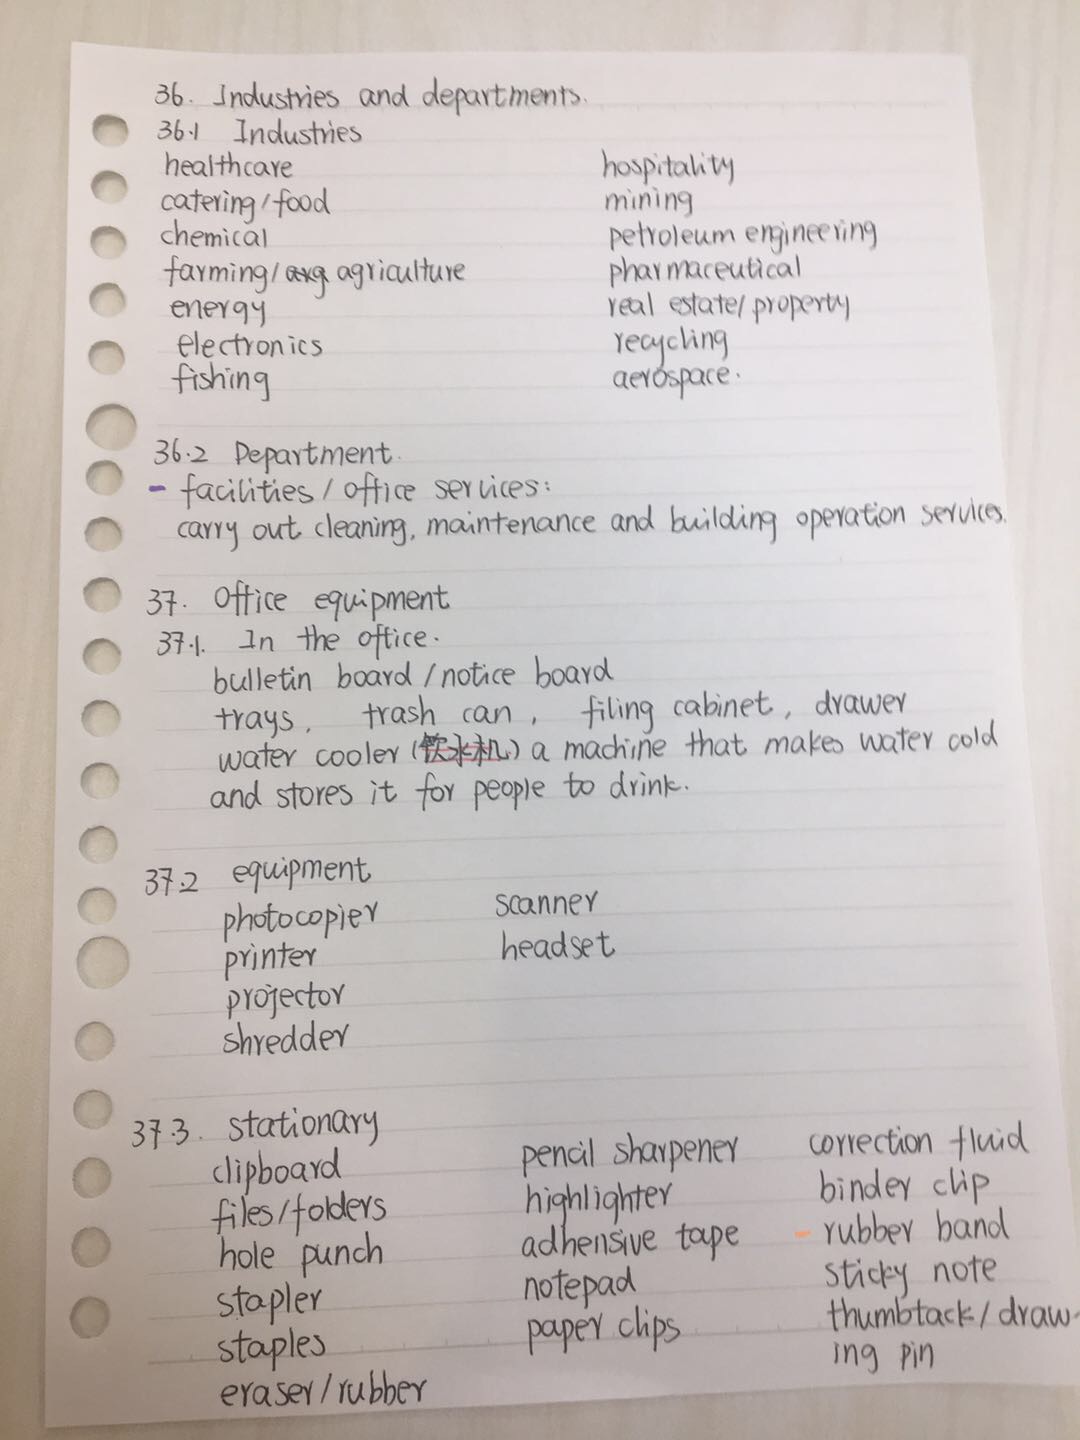 36. Industries and departments.
36.1 Industries
healthcare
catering/food
chemical
farming/ agriculture
energy
electronics
fishing
hospitality
mining
petroleum engineering
pharmaceutical
real estate/property
recycling
aerospace.
36.2 Department.
- facilities / office services:
carry out cleaning, maintenance and building operation services.
37. Office equipment
37.1. In the office.
bulletin board / notice board
trays, trash can, filing cabinet, drawer
water cooler (饮水机) a machine that makes water cold
and stores it for people to drink.
37.2 equipment
photocopier
printer
projector
shredder
scanner
headset
37.3. stationary
clipboard
files/folders
hole punch
stapler
staples
eraser/rubber
pencil sharpener
highlighter
adhensive tape
notepad
paper clips
correction fluid
binder clip
- rubber band
sticky note
thumbtack/draw-
ing pin